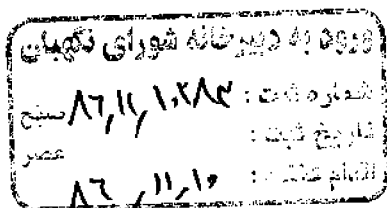 ورود به دبیرخانه شورای نگهبان
شماره ثبت : صبح
تاریخ ثبت :
عصر
اقدام کننده : ۸۶ ,۱۱,۱۰